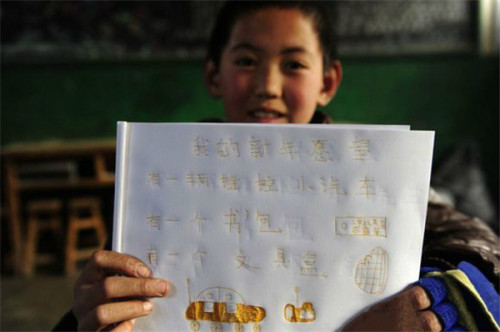 我的新年愿望
有一辆 小汽车
有一个书包
有一个文具盒